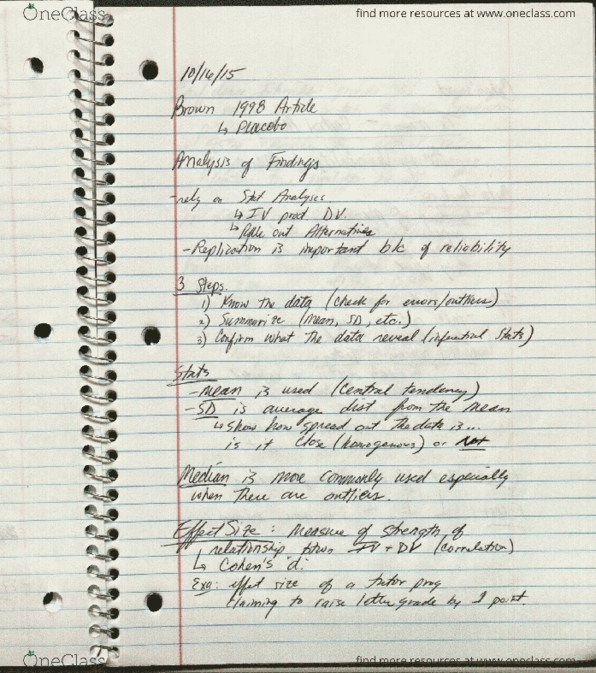 OneClass
find more resources at www.oneclass.com
10/16/15
Brown 1998 Article
↳ Placebo
Analysis of Findings
-rely on Stat Analyses
↳ IV prod DV
↳ Rule out Alternatives
-Replication is important b/c of reliability
3 Steps.
1) Know the data (check for errors/outliers)
2) Summarize (mean, SD, etc.)
3) Confirm what the data reveal (inferential stats)
Stats
-mean is used (central tendency)
-SD is average dist from the mean
↳ show how spread out the data is...
is it close (homogenous) or not
Median is more commonly used especially
when there are outliers.
Effect Size: Measure of strength of
relationship btwn IV + DV (correlation)
↳ Cohen's 'd.'
Exa: effect size of a tutor prog
claiming to raise letter grade by 1 point.
OneClass
find more resources at www.oneclass.com